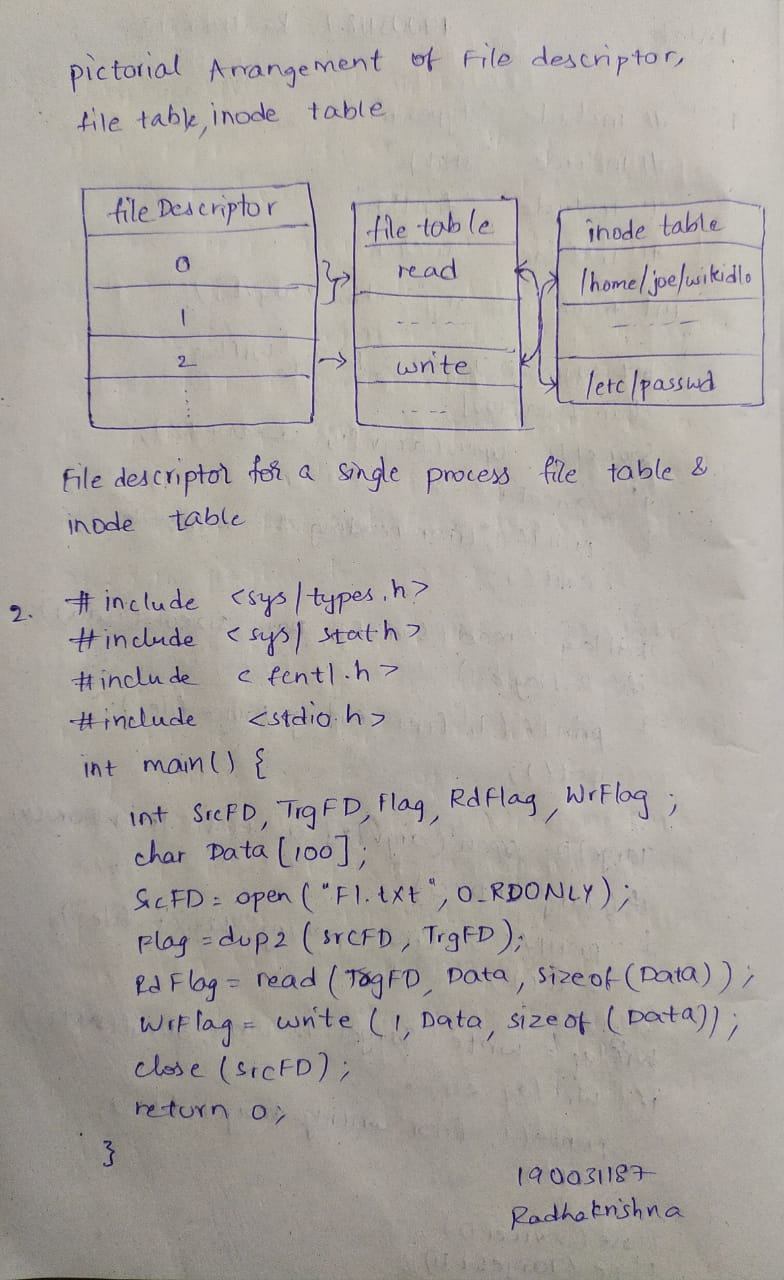 pictorial Arrangement of File descriptor,
file table, inode table
file Descriptor
0
1
2
file table
read
-----
write
----
inode table
/home/joe/wikidlo
-----
/etc/passwd
File descriptor for a single process file table &
inode table
2. #include <sys/types.h>
#include <sys/ stat.h>
#include < fcntl.h>
#include <stdio.h>
int main() {
int SrcFD, TrgFD, Flag, RdFlag, WrFlag ;
char Data [100];
SrcFD = open ("F1.txt", O_RDONLY);
Flag = dup2 (srcFD, TrgFD);
RdFlag = read (TrgFD, Data, sizeof(Data));
WrFlag = write (1, Data, sizeof (Data));
close (SrcFD);
return 0;
}
190031187
Radhakrishna